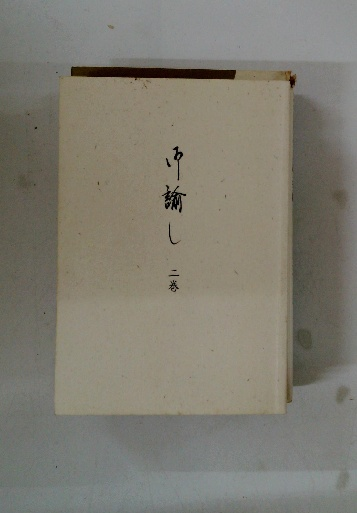 御諭し 二巻